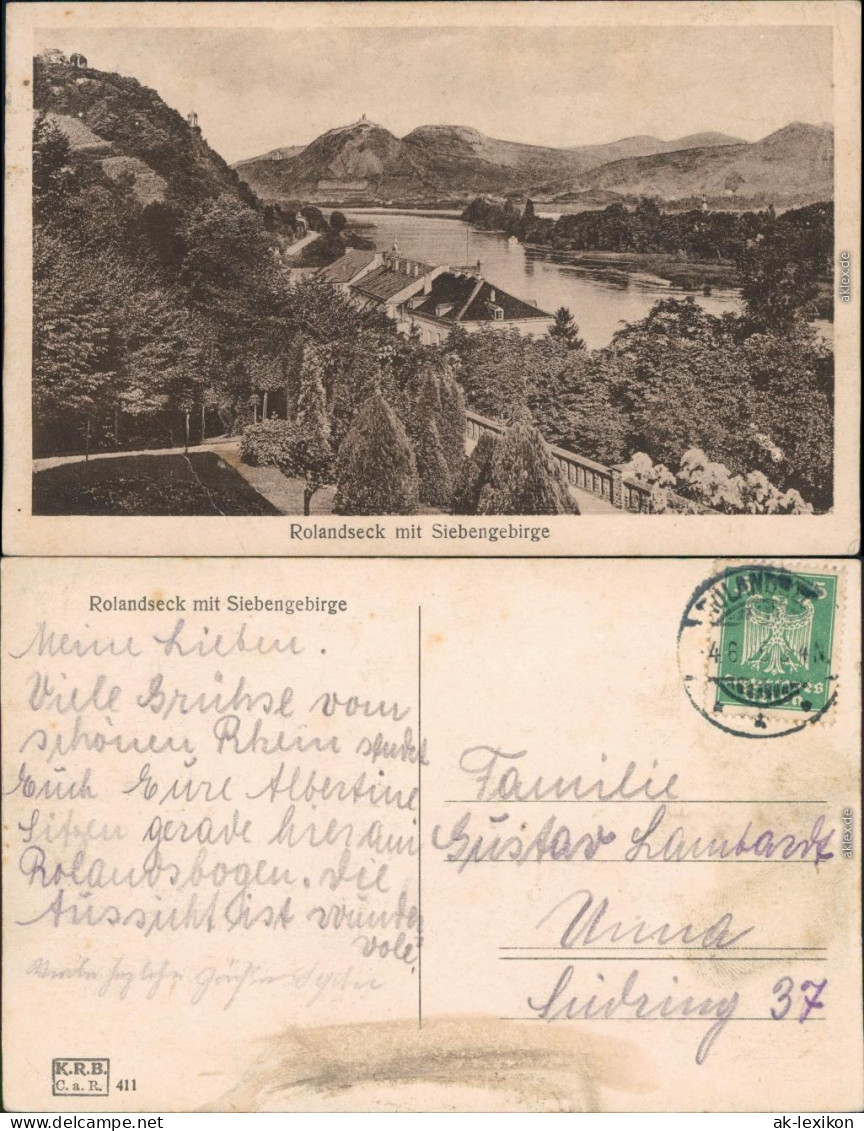 Rolandseck mit Siebengebirge
aklex.de
Rolandseck mit Siebengebirge
Meine Lieben.
Viele Grühse vom
schönen Rhein sendet
Euch Eure Albertine
Sitzen gerade hier am
Rolandsbogen. die
Aussicht ist wunder
voll
ROLANDS
5
4.6
4N
Familie
Gustav Lambardt
Unna
Südring 37
aklex.de
K.R.B.
C.a.R. 411
www.ak-ansichtskarten.de
ak-lexikon